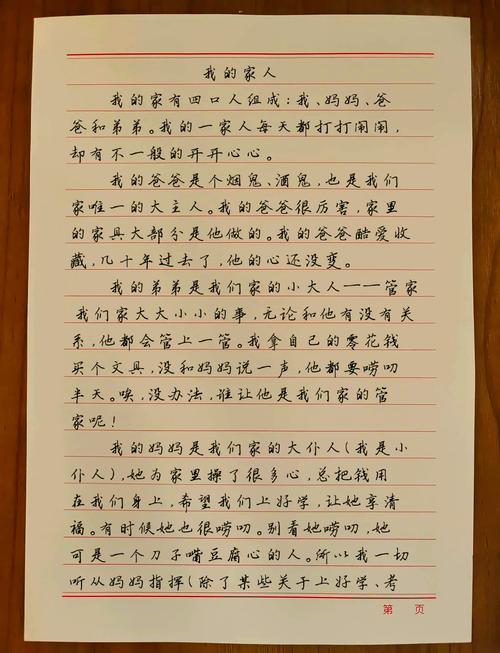 我的家人
我的家有四口人组成：我、妈妈、爸
爸和弟弟。我的一家人每天都打打闹闹，
却有不一般的开开心心。
我的爸爸是个烟鬼、酒鬼，也是我们
家唯一的大主人。我的爸爸很厉害，家里
的家具大部分是他做的。我的爸爸酷爱收
藏，几十年过去了，他的心还没变。
我的弟弟是我们家的小大人——管家
我们家大大小小的事，无论和他有没有关
系，他都会管上一管。我拿自己的零花钱
买个文具，没和妈妈说一声，他都要唠叨
半天。唉，没办法，谁让他是我们家的管
家呢！
我的妈妈是我们家的大仆人（我是小
仆人），她为家里操了很多心，总把钱用
在我们身上，希望我们上好学，让她享清
福。有时候她也很唠叨。别看她唠叨，她
可是一个刀子嘴豆腐心的人。所以我一切
听从妈妈指挥（除了某些关于上好学、考
第 页